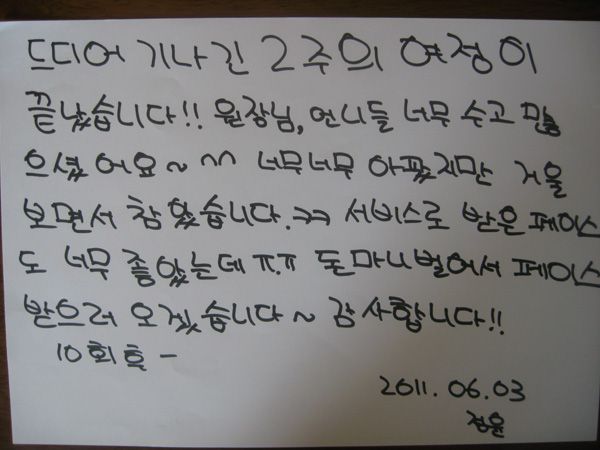 드디어 기나긴 2주의 여정이
끝났습니다!! 원장님, 언니들 너무 수고 많
으셨어요~ ^^ 너무너무 아팠지만 거울
보면서 참았습니다.ㅋㅋ 서비스로 받은 페이스
도 너무 좋았는데 ㅠ.ㅠ 돈마니벌어서 페이스
받으러 오겠습니다~ 감사합니다!!
10회 후 -
2011. 06. 03